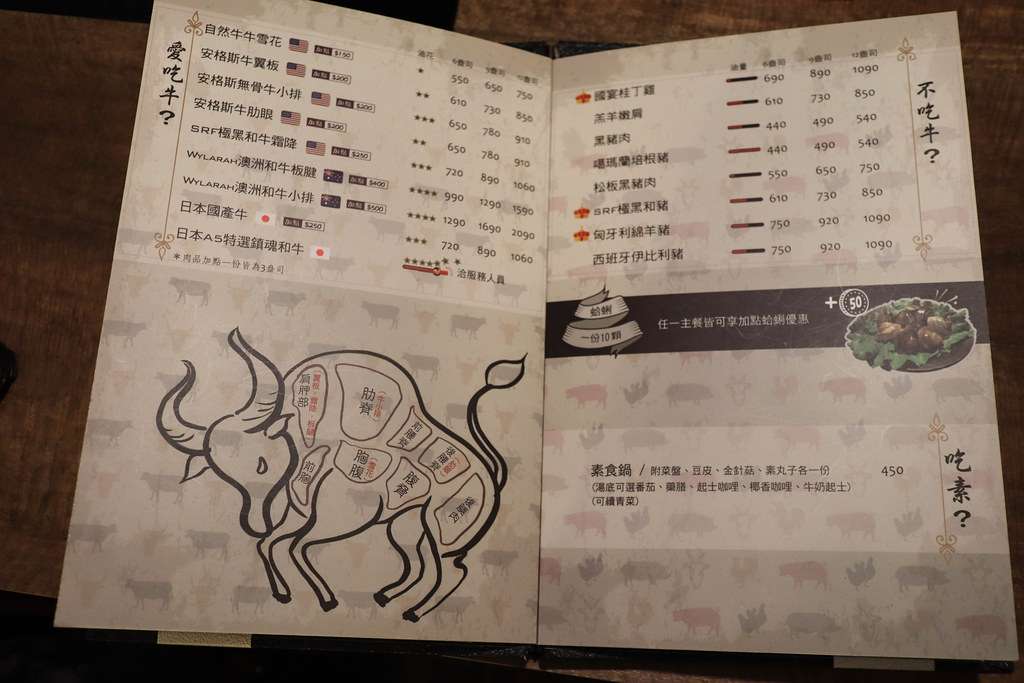 愛吃牛?
油花 6盎司 9盎司 12盎司
自然牛牛雪花 加點 $150 ★ 550 650 750
安格斯牛翼板 加點 $200 ★★ 610 730 850
安格斯無骨牛小排 加點 $200 ★★★ 650 780 910
安格斯牛肋眼 加點 $200 ★★ 650 780 910
SRF極黑和牛霜降 加點 $250 ★★★ 720 890 1060
WYLARAH澳洲和牛板腱 加點 $400 ★★★★ 990 1290 1590
WYLARAH澳洲和牛小排 加點 $500 ★★★★ 1290 1690 2090
日本國產牛 加點 $250 ★★★ 720 890 1060
日本A5特選鎮魂和牛 ★★★★★★★ 洽服務人員
*肉品加點一份皆為3盎司
肩胛部
(翼板、霜降、板腱)
肋脊
(牛小排)
前腰脊
後腰脊
前胸
胸腹
(雪花)
腹脅
後腿肉
不吃牛?
油量 6盎司 9盎司 12盎司
國宴桂丁雞 690 890 1090
羔羊嫩肩 610 730 850
黑豬肉 440 490 540
噶瑪蘭培根豬 440 490 540
松板黑豬肉 550 650 750
SRF極黑和豬 610 730 850
匈牙利綿羊豬 750 920 1090
西班牙伊比利豬 750 920 1090
蛤蜊
一份10顆
任一主餐皆可享加點蛤蜊優惠
+50
吃素?
素食鍋 / 附菜盤、豆皮、金針菇、素丸子各一份 450
(湯底可選番茄、藥膳、起士咖哩、椰香咖哩、牛奶起士)
(可續青菜)